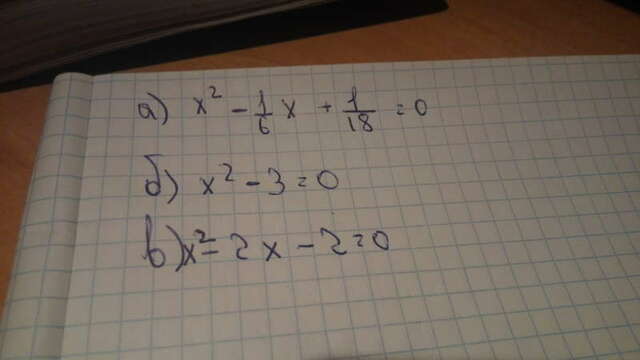 а) x² - 1/6 x + 1/18 = 0
б) x² - 3 = 0
в) x² - 2x - 2 = 0